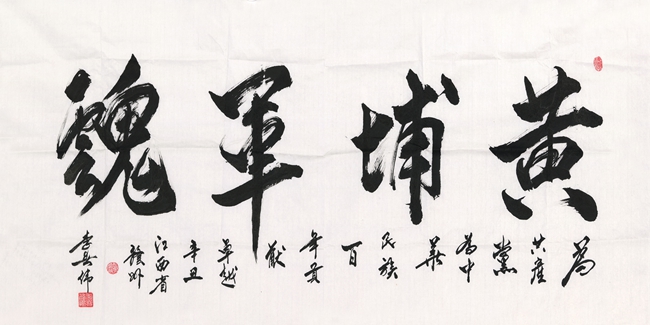 黄埔軍魂
為
共産
黨
為中
華
民族
百
年貢
獻
卓越
辛丑
江西省
贛州
李